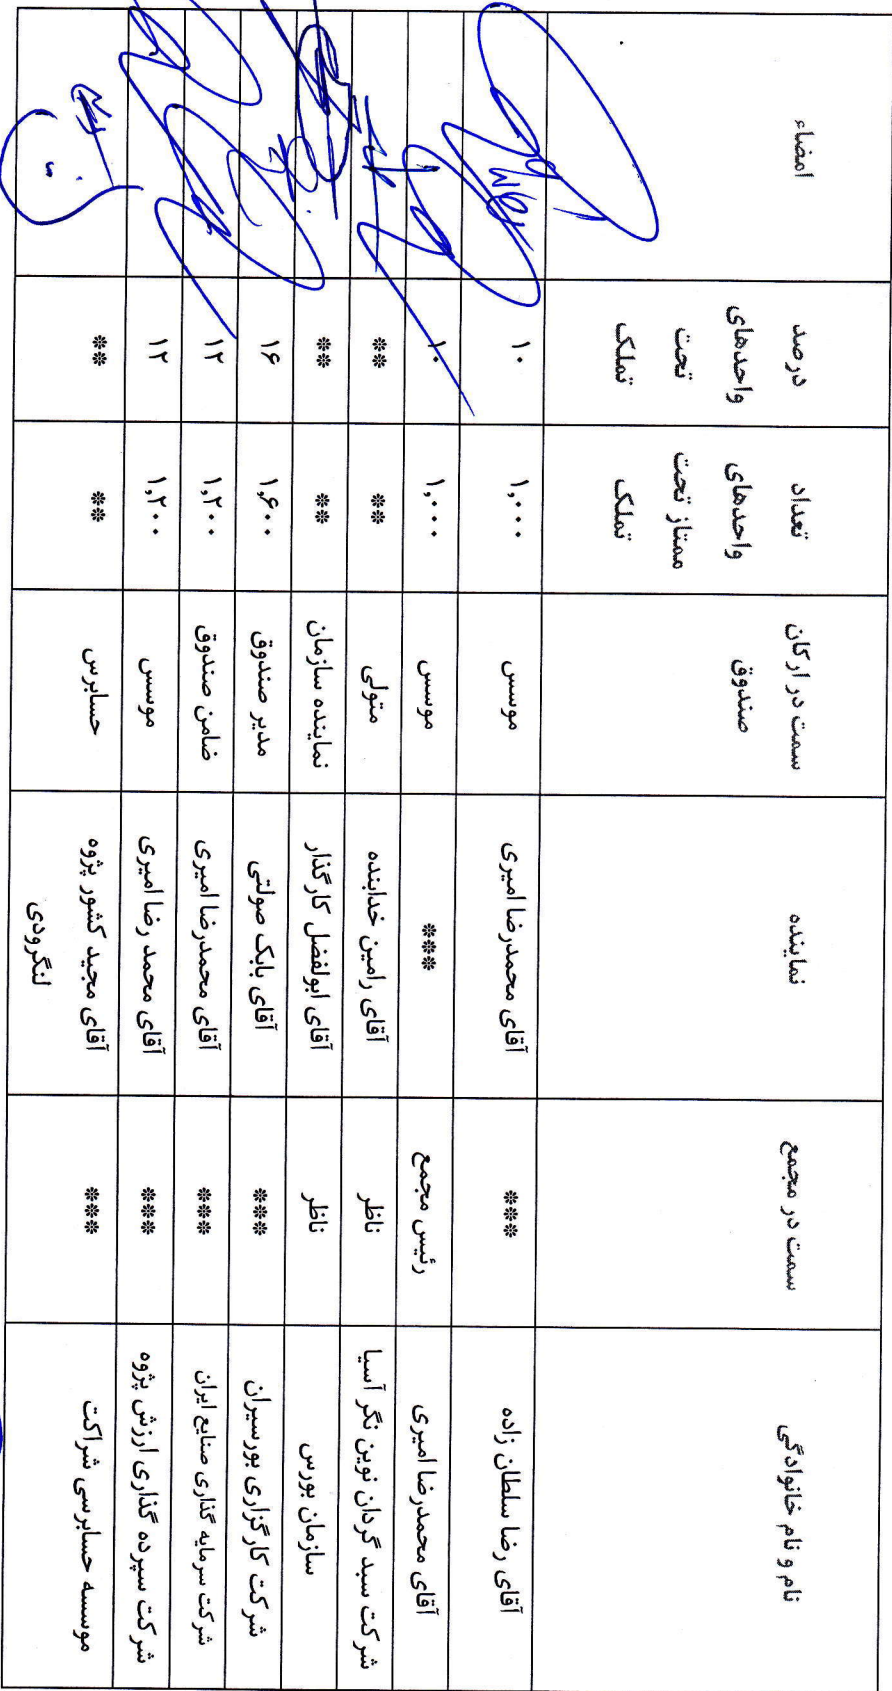 نام و نام خانوادگی	سمت در مجمع	نماینده	سمت در ارکان صندوق	تعداد واحدهای ممتاز تحت تملک	درصد واحدهای تحت تملک	امضاء
آقای رضا سلطان زاده	***	آقای محمدرضا امیری	موسس	۱,۰۰۰	۱۰
آقای محمدرضا امیری	رئیس مجمع	***	موسس	۱,۰۰۰	۱۰
شرکت سبد گردان نوین نگر آسیا	ناظر	آقای رامین خدابنده	متولی	**	**
سازمان بورس	ناظر	آقای ابولفضل کارگذار	نماینده سازمان	**	**
شرکت کارگزاری بورسیران	***	آقای بابک صولتی	مدیر صندوق	۱,۶۰۰	۱۶
شرکت سرمایه گذاری صنایع ایران	***	آقای محمدرضا امیری	ضامن صندوق	۱,۲۰۰	۱۲
شرکت سپرده گذاری ارزش پژوه	***	آقای محمد رضا امیری	موسس	۱,۲۰۰	۱۲
موسسه حسابرسی شراکت	***	آقای مجید کشور پژوه لنگرودی	حسابرس	**	**